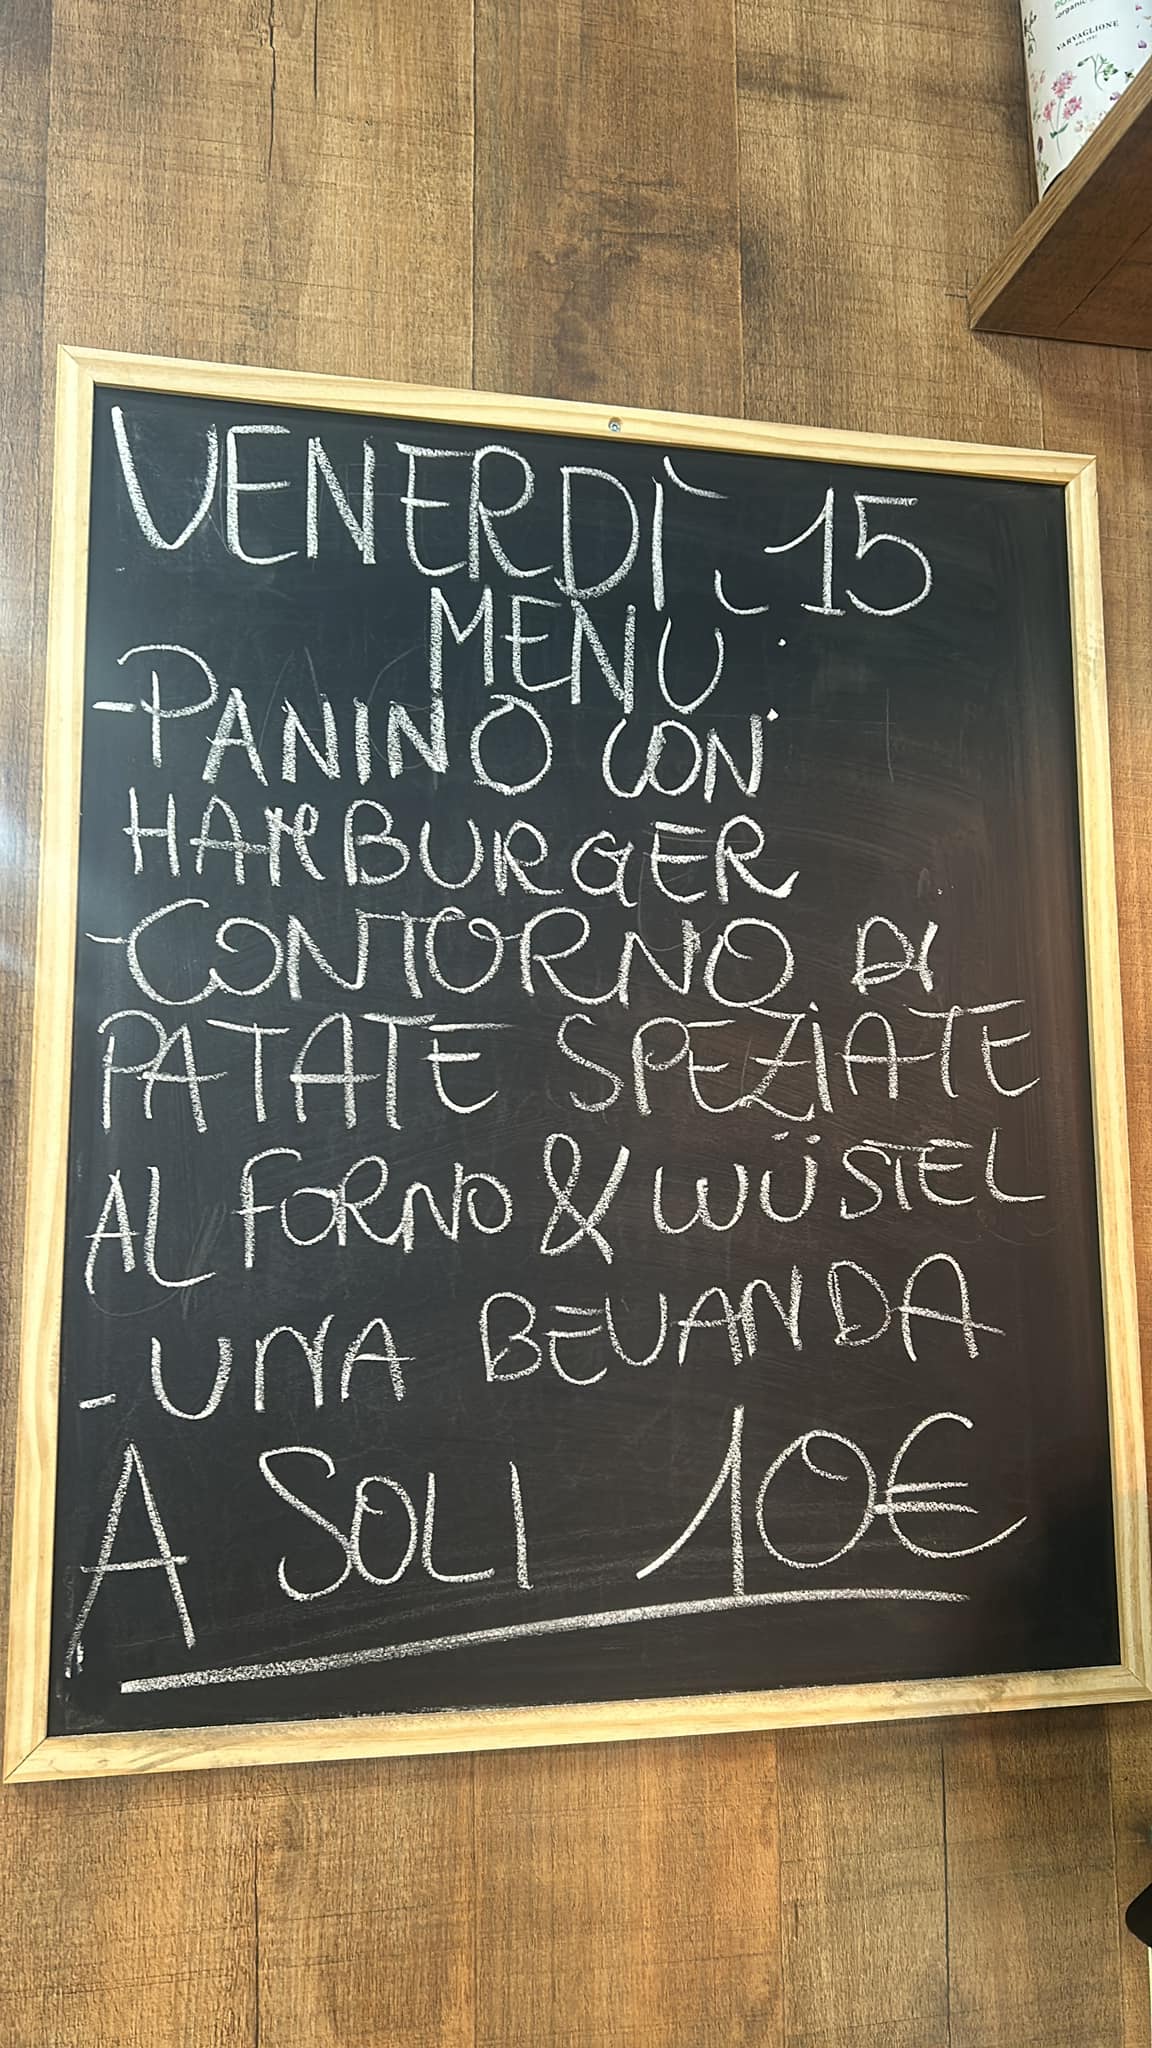 organic
VARVAGLIONE
VENERDÌ 15
MENÙ:
-PANINO CON
HAMBURGER
-CONTORNO DI
PATATE SPEZIATE
AL FORNO & WÜSTEL
-UNA BEVANDA
A SOLI 10€